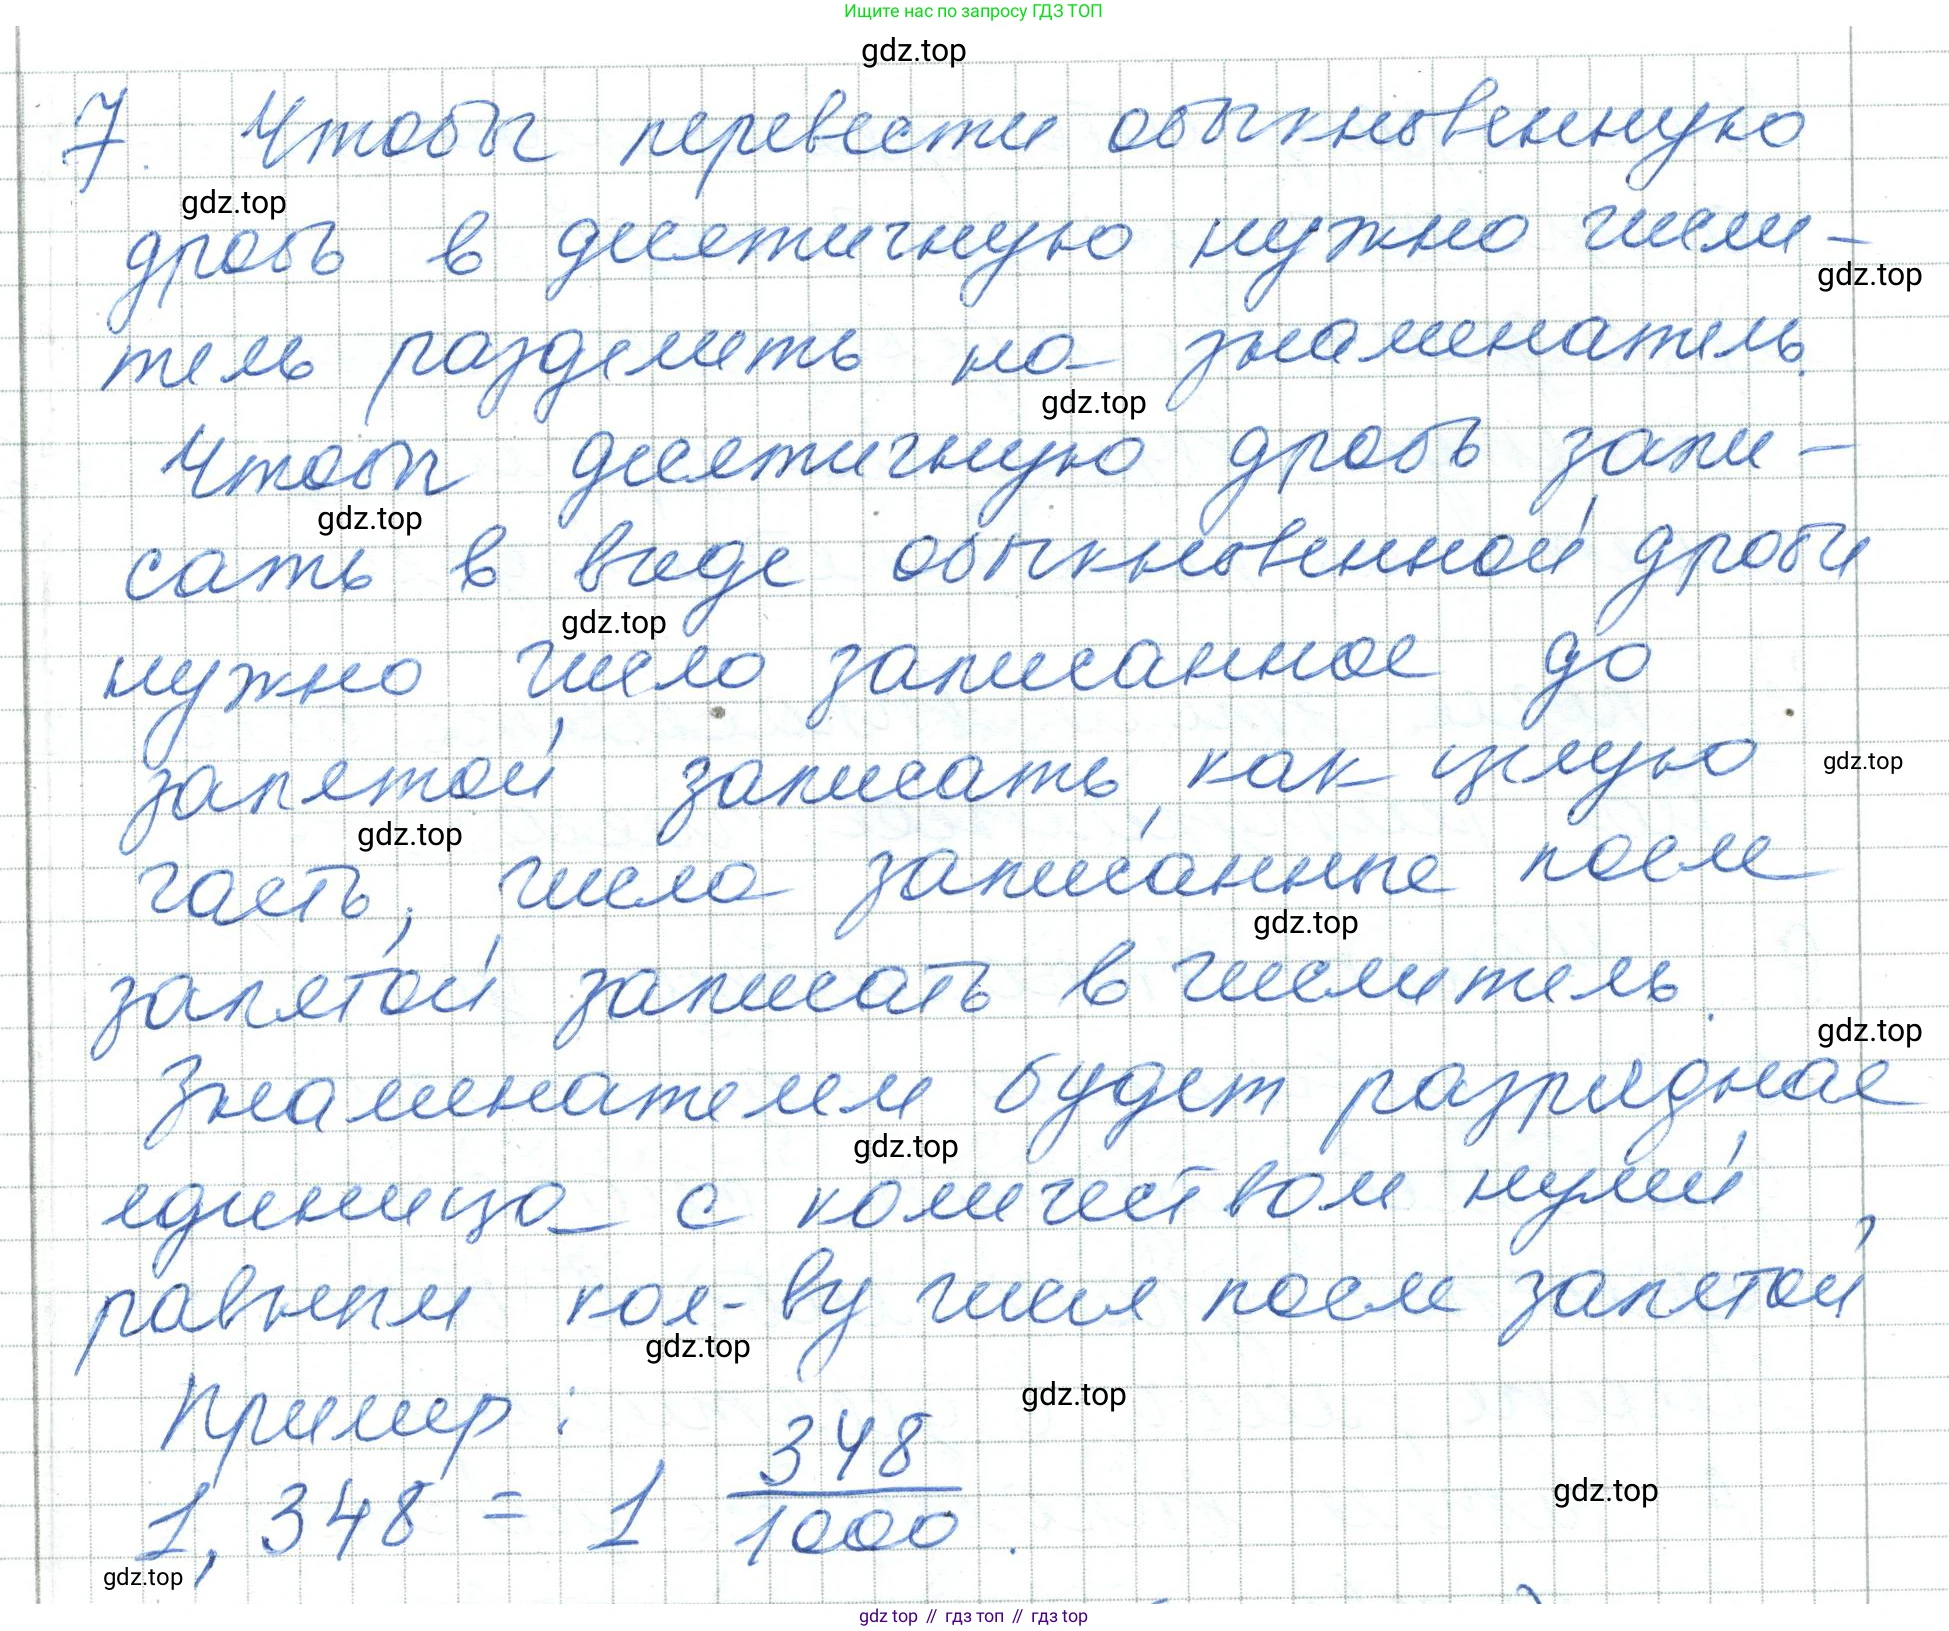 Ищите нас по запросу ГДЗ ТОП
gdz.top
7. Чтобы перевести обыкновенную
gdz.top
дробь в десятичную нужно числи-
gdz.top
тель разделить на знаменатель.
gdz.top
Чтобы десятичную дробь запи-
gdz.top
сать в виде обыкновенной дроби
gdz.top
нужно число записанное до
запятой записать, как целую
gdz.top
gdz.top
часть, числа записанные после
gdz.top
запятой записать в числитель.
gdz.top
Знаменателем будет разрядная
gdz.top
единица с количеством нулей,
равным кол-ву чисел после запятой
gdz.top
Пример:
gdz.top
1,348 = 1 348/1000.
gdz.top
gdz.top
gdz top // гдз топ // гдз top